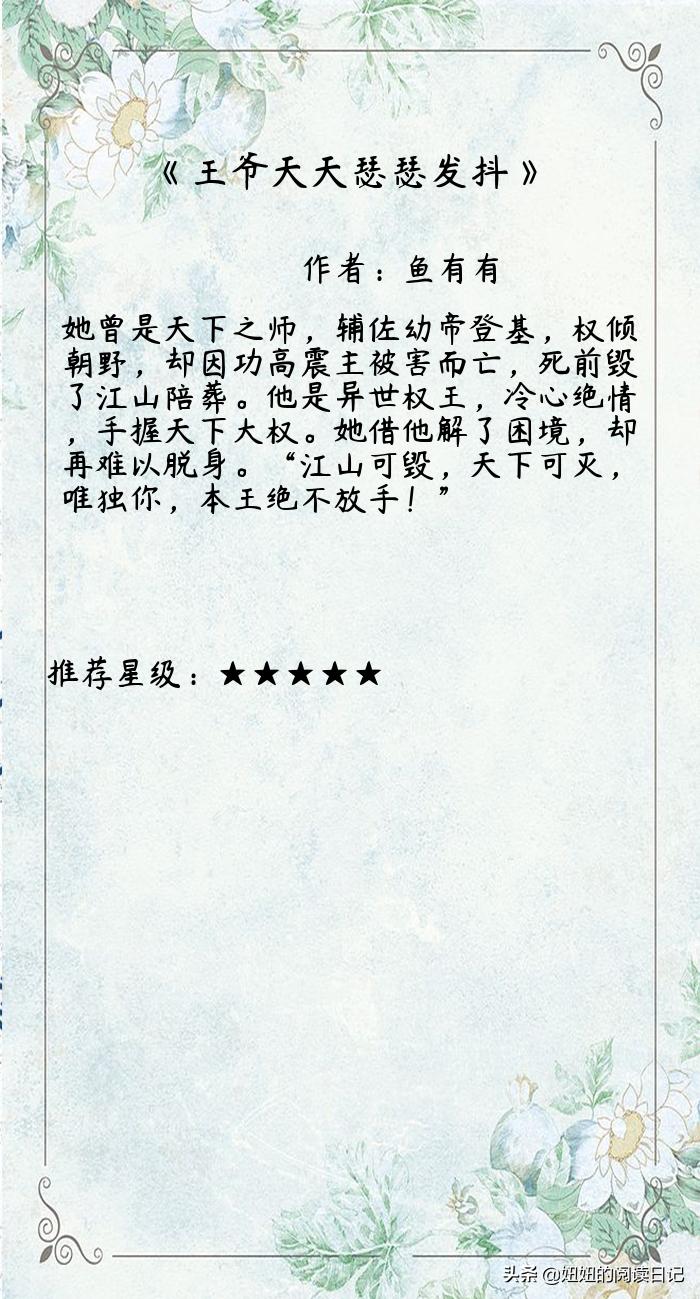 《王爷天天瑟瑟发抖》
作者：鱼有有
她曾是天下之师，辅佐幼帝登基，权倾
朝野，却因功高震主被害而亡，死前毁
了江山陪葬。他是异世权王，冷心绝情
，手握天下大权。她借他解了困境，却
再难以脱身。“江山可毁，天下可灭，
唯独你，本王绝不放手！”
推荐星级：★★★★★
头条 @妞妞的阅读日记